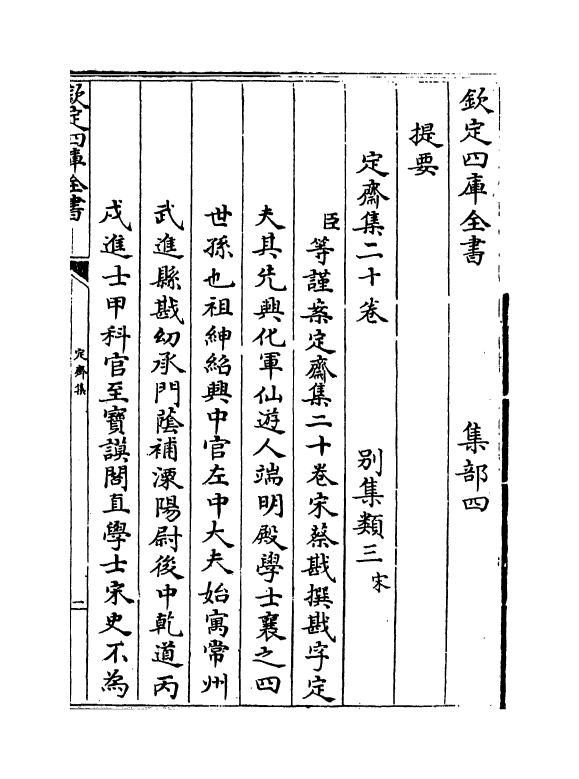 欽定四庫全書　　　　集部四
提要
定齋集二十卷　　　　別集類三宋
臣等謹案定齋集二十卷宋蔡戡撰戡字定
夫其先興化軍仙遊人端明殿學士襄之四
世孫也祖紳紹興中官左中大夫始寓常州
武進縣戡幼承門蔭補溧陽尉後中乾道丙
戌進士甲科官至寶謨閣直學士宋史不為
欽定四庫全書
定齋集